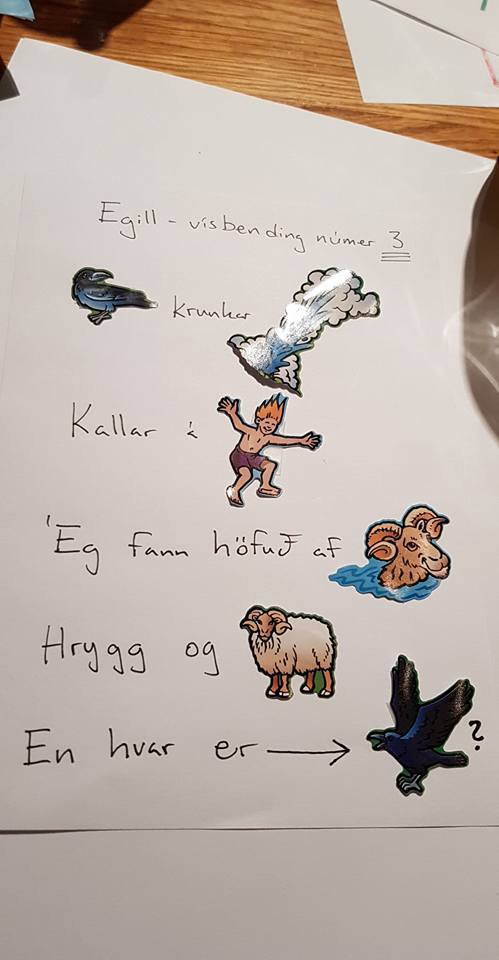 Egill - vísbending númer 3
Krunkar
Kallar á
Ég fann höfuð af
Hrygg og
En hvar er → ?